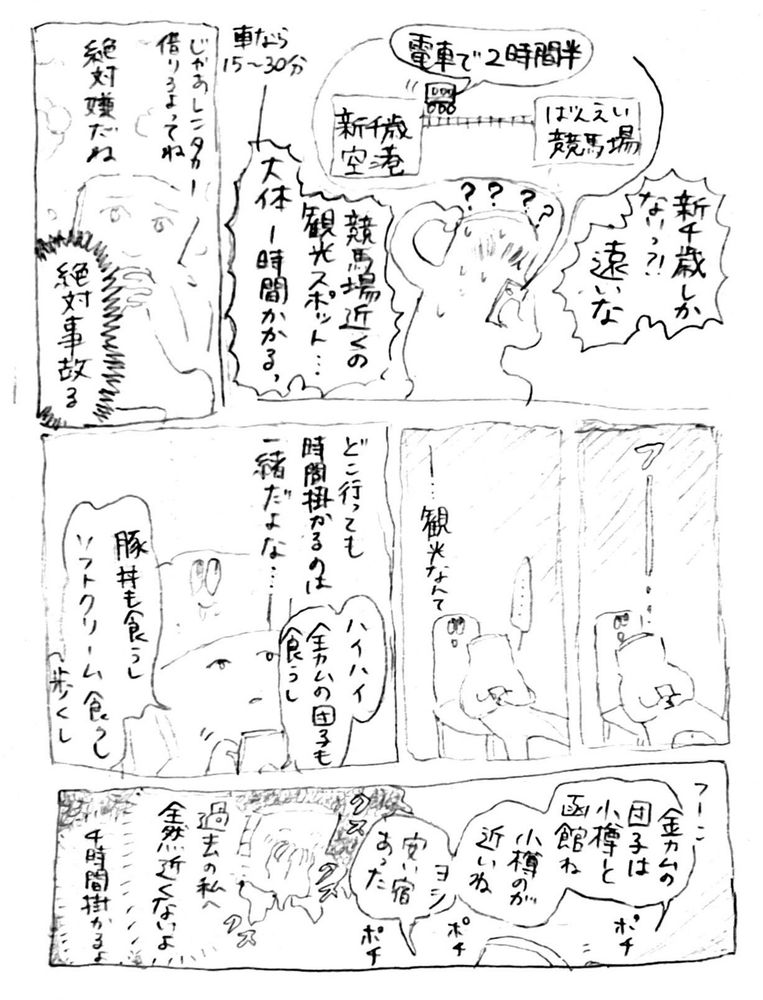 新千歳しか
ないっ?!
遠いな
電車で2時間半
新千歳
空港
ばんえい
競馬場
? ? ? ?
競馬場近くの
観光スポット…
大体1時間かかる,
車なら
15〜30分
じゃあレンタカー
借りるよってね
絶対嫌だね
絶対事故る
…観光なんて
どこ行っても
時間掛かるのは
一緒だよな…
ハイハイ
金カムの団子も
食うし
豚丼も食うし
ソフトクリーム食うし
歩くし
つーこ
金カムの
団子は
小樽と
函館ね
ポチ
小樽のが
近いね
ポチ
ヨシ
安い宿
あった
ポチ
過去の私へ
全然近くないよ
4時間掛かるよ